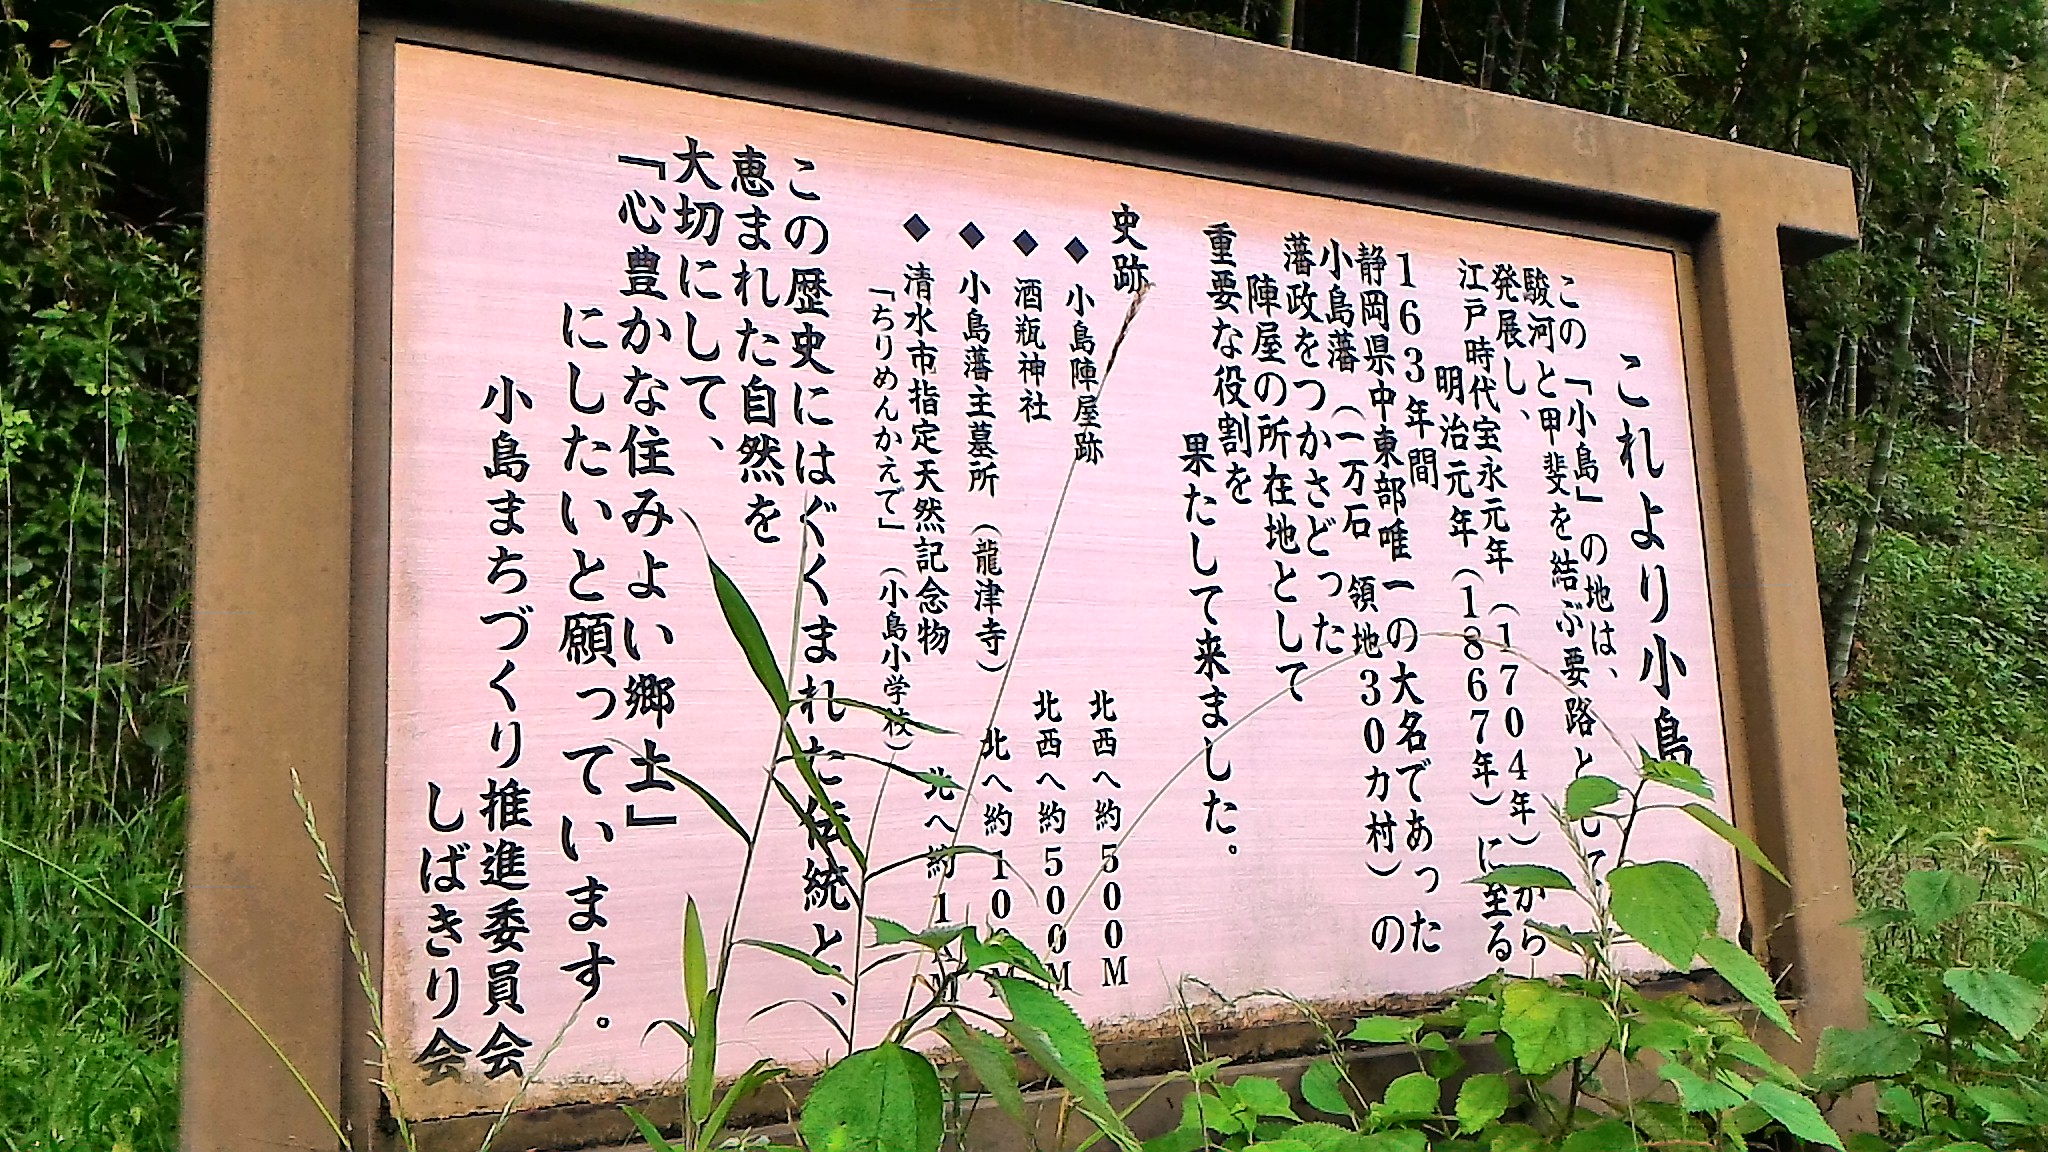 これより小島
この「小島」の地は、
駿河と甲斐を結ぶ要路として
発展し、
江戸時代宝永元年（1704年）から
明治元年（1867年）に至る
163年間
静岡県中東部唯一の大名であった
小島藩（一万石 領地30カ村）の
藩政をつかさどった
陣屋の所在地として
重要な役割を
果たして来ました。
史跡
◆ 小島陣屋跡 北西へ約500M
◆ 酒瓶神社 北西へ約500M
◆ 小島藩主墓所（龍津寺） 北へ約10
◆ 清水市指定天然記念物
「ちりめんかえで」（小島小学校） 北へ約1
この歴史にはぐくまれた伝統と、
恵まれた自然を
大切にして、
「心豊かな住みよい郷土」
にしたいと願っています。
小島まちづくり推進委員会
しばきり会